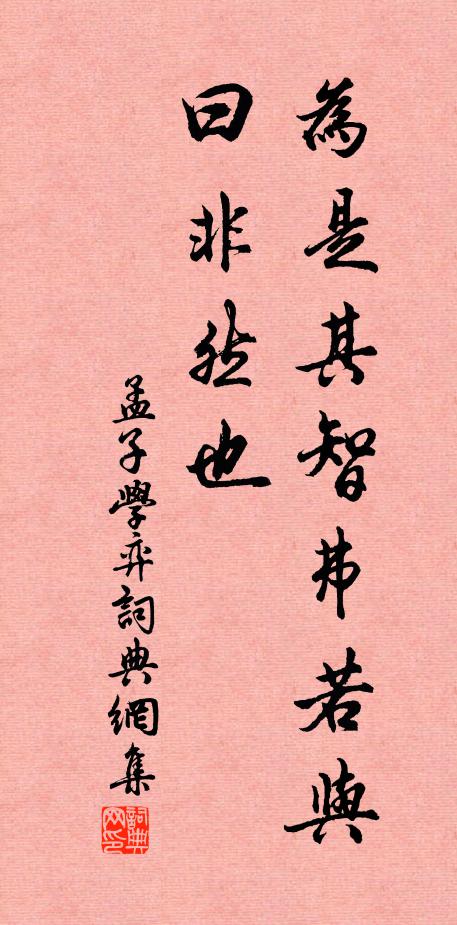 為是其智弗若與
曰非然也
孟子學弈詞典網集
詞典网印